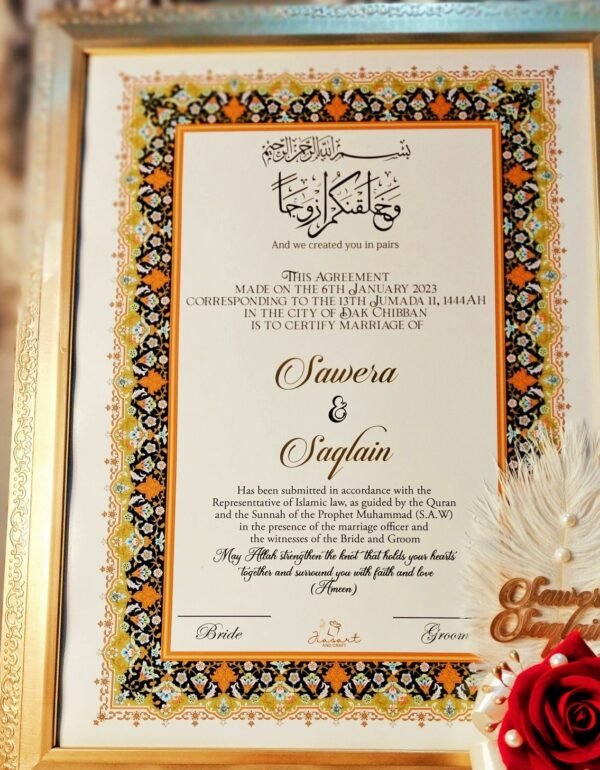 بسم الله الرحمن الرحيم
وخلقنكم ازوجا
And we created you in pairs
THIS AGREEMENT
MADE ON THE 6TH JANUARY 2023
CORRESPONDING TO THE 13TH JUMADA 11, 1444AH
IN THE CITY OF DAK CHIBBAN
IS TO CERTIFY MARRIAGE OF
Sawera
&
Saqlain
Has been submitted in accordance with the
Representtative of Islamic law, as guided by the Quran
and the Sunnah of the Prophet Muhammad (S.A.W)
in the presence of the marriage officer and
the witnesses of the Bride and Groom
May Allah strengthen the knot that holds your hearts'
together and surround you with faith and love
(Ameen)
Bride
Groom
AND CRAFT
Sawera
Saqlain